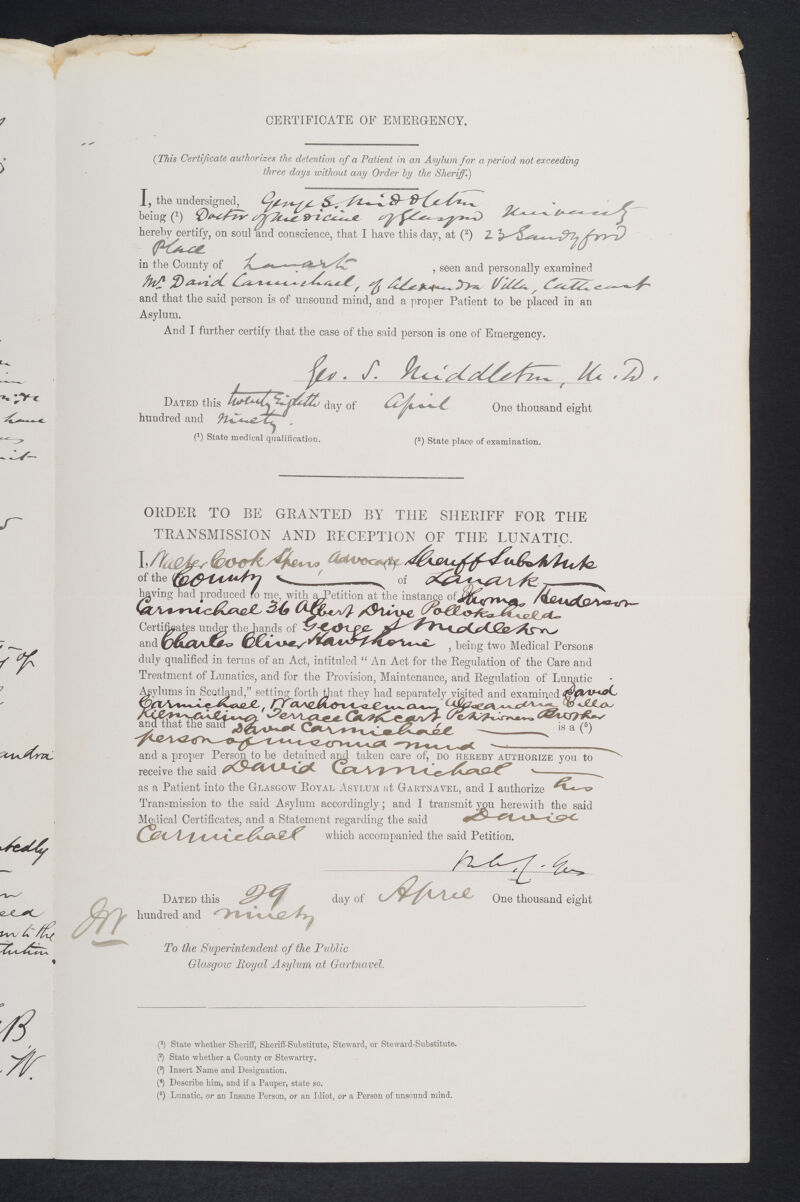 CERTIFICATE OF EMERGENCY.
(This Certificate authorizes the detention of a Patient in an Asylum for a period not exceeding
three days without any Order by the Sheriff.)
I, the undersigned, George S. Middleton
being (¹) Doctor of Medicine of Glasgow University
hereby certify, on soul and conscience, that I have this day, at (²) 23 Sandyford
Place
in the County of Lanark , seen and personally examined
Mr. David Carmichael, of Alexandra Villa, Cathcart
and that the said person is of unsound mind, and a proper Patient to be placed in an
Asylum.
And I further certify that the case of the said person is one of Emergency.
Geo. S. Middleton, M.D.
DATED this twenty Eighth day of April One thousand eight
hundred and Ninety.
(¹) State medical qualification. (²) State place of examination.
ORDER TO BE GRANTED BY THE SHERIFF FOR THE
TRANSMISSION AND RECEPTION OF THE LUNATIC.
I, Walter Cook Spens, Advocate Sheriff Substitute
of the County of Lanark
having had produced to me, with a Petition at the instance of Thomas Henderson
Carmichael 36 Albert Drive Pollokshields
Certificates under the hands of George S Middleton
and Charles Oliver Hawthorne , being two Medical Persons
duly qualified in terms of an Act, intituled " An Act for the Regulation of the Care and
Treatment of Lunatics, and for the Provision, Maintenance, and Regulation of Lunatic
Asylums in Scotland," setting forth that they had separately visited and examined David
Carmichael, Warehouseman, Alexandria Villa
Kilmailing Terrace Cathcart Petitioners Brother
and that the said David Carmichael is a (⁵)
person of unsound mind
and a proper Person to be detained and taken care of, DO HEREBY AUTHORIZE you to
receive the said David Carmichael
as a Patient into the GLASGOW ROYAL ASYLUM at GARTNAVEL, and I authorize his
Transmission to the said Asylum accordingly; and I transmit you herewith the said
Medical Certificates, and a Statement regarding the said David
Carmichael which accompanied the said Petition.
DATED this 29 day of April One thousand eight
hundred and ninety
To the Superintendent of the Public
Glasgow Royal Asylum at Gartnavel.
(¹) State whether Sheriff, Sheriff-Substitute, Steward, or Steward-Substitute.
(²) State whether a County or Stewartry.
(³) Insert Name and Designation.
(⁴) Describe him, and if a Pauper, state so.
(⁵) Lunatic, or an Insane Person, or an Idiot, or a Person of unsound mind.